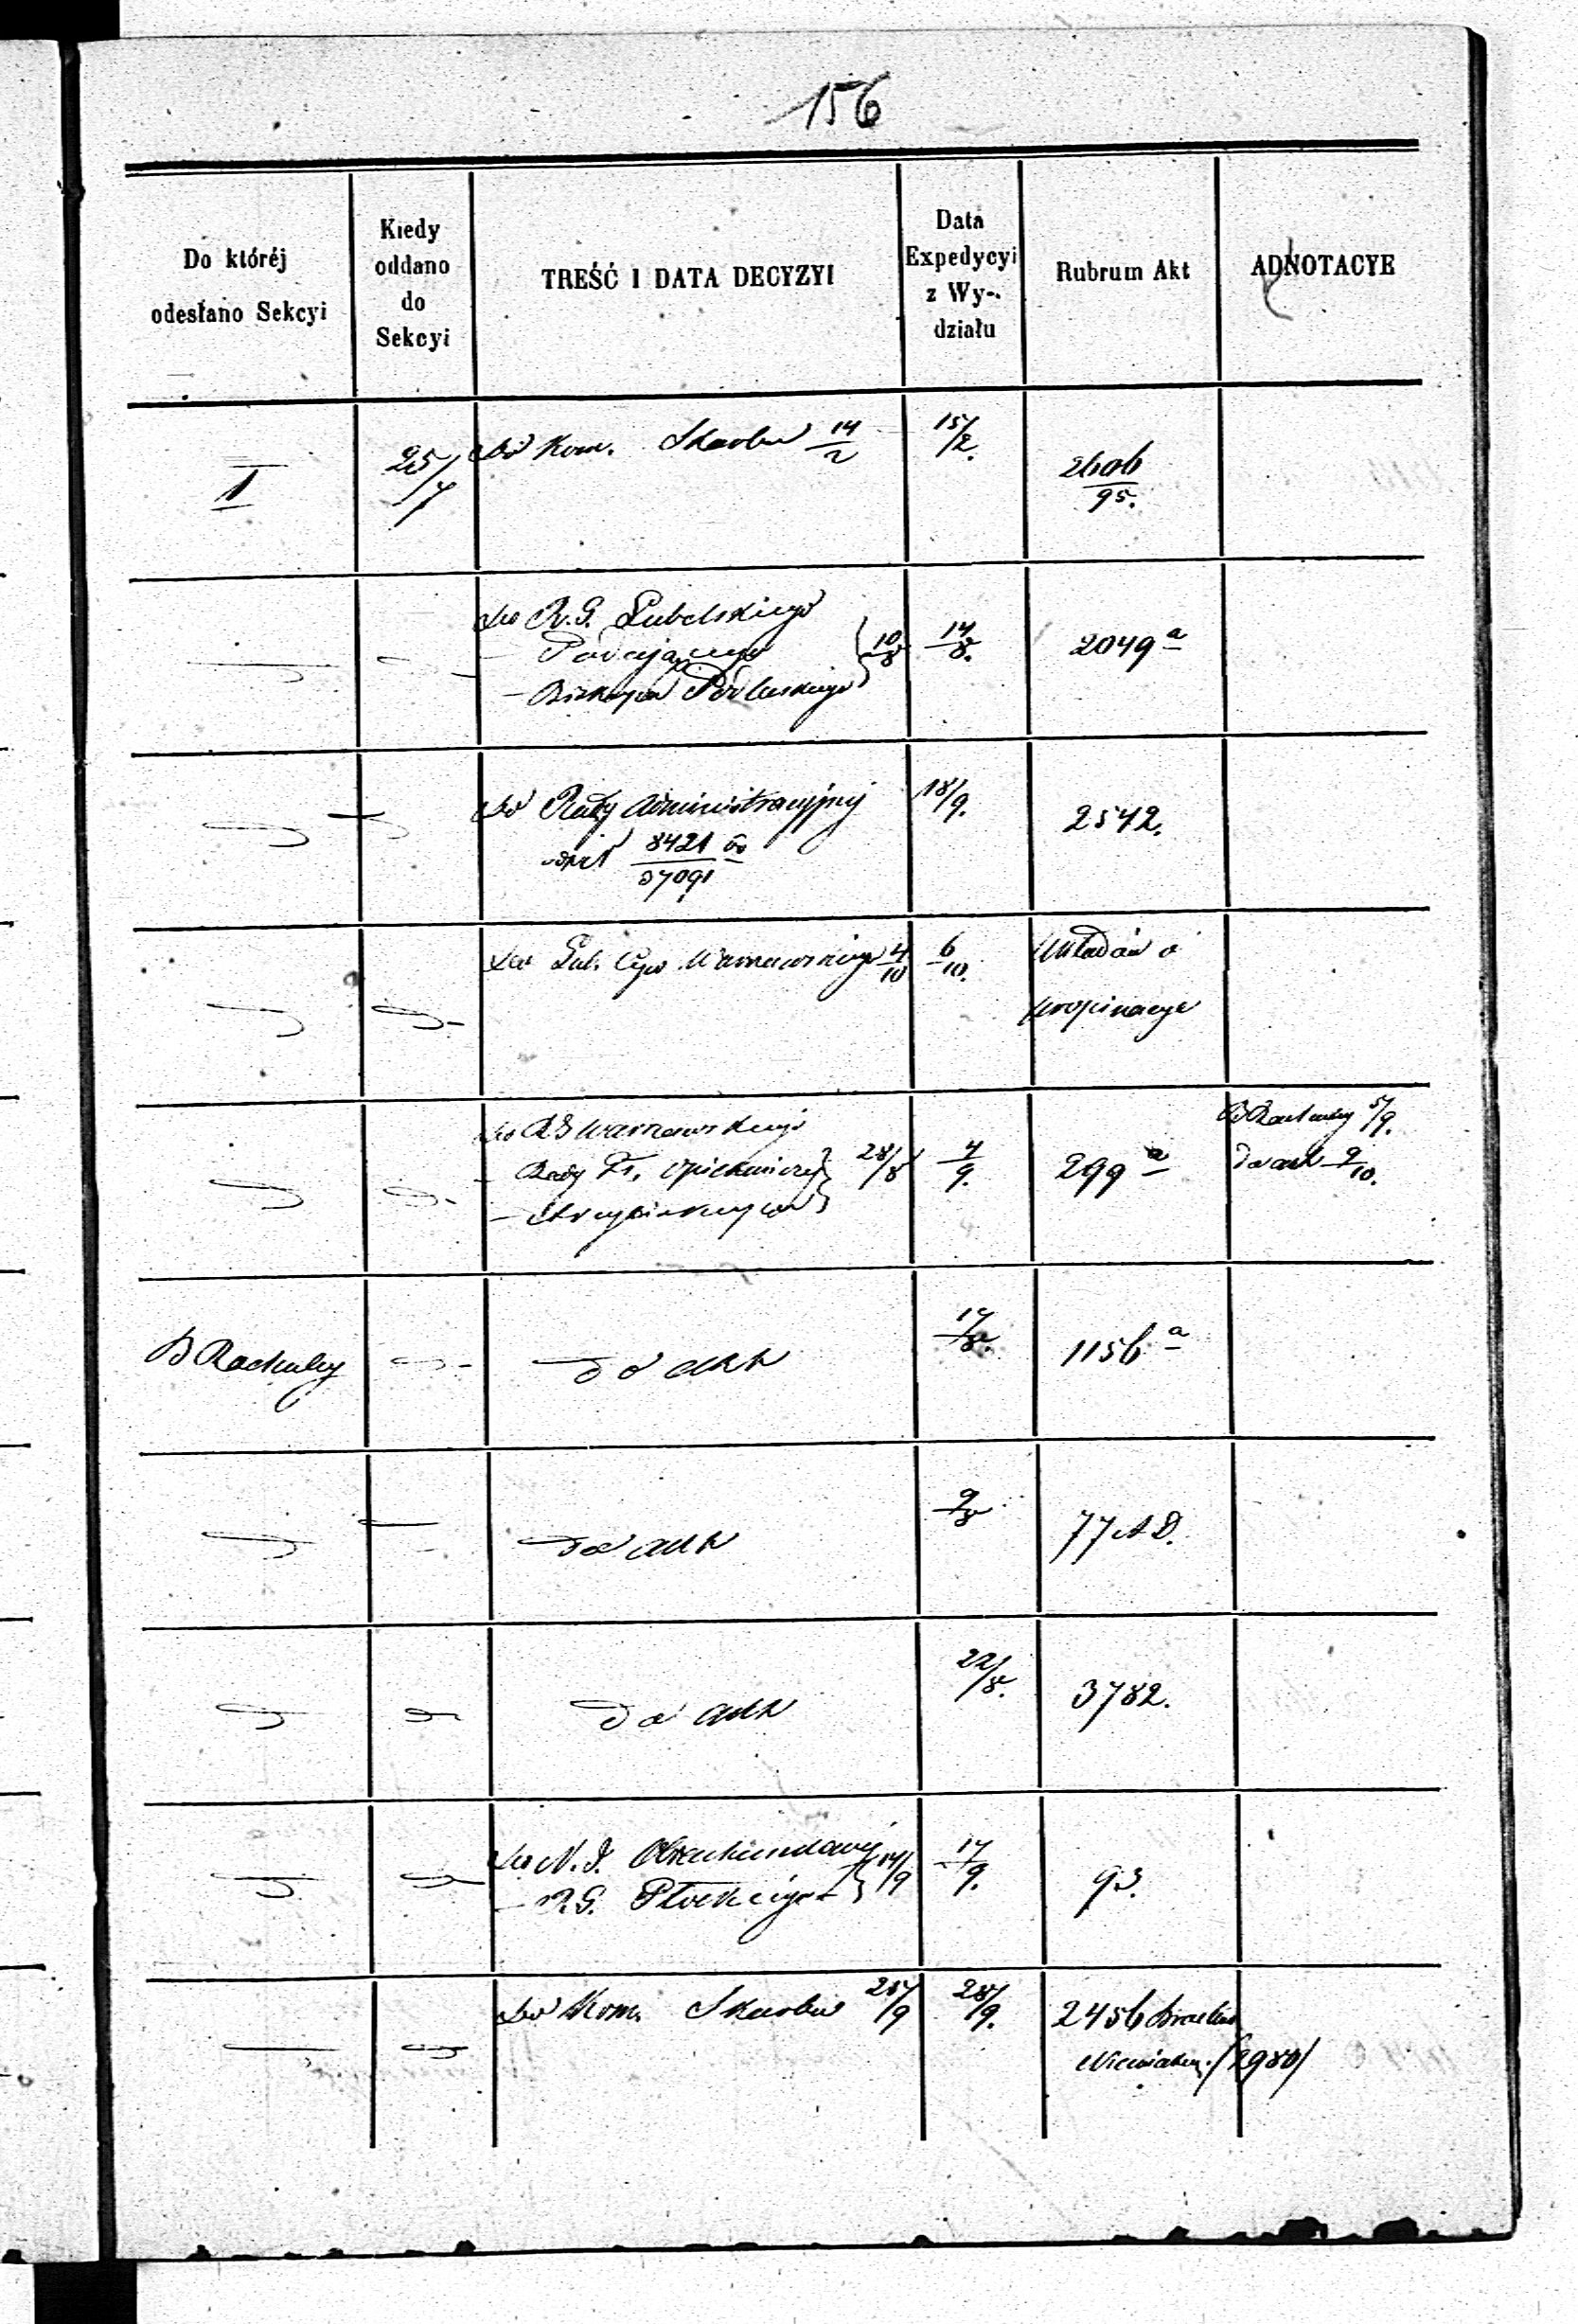 156
Do któréj
odesłano Sekcyi
Kiedy
oddano
do
Sekcyi
TREŚĆ I DATA DECYZYI
Data
Expedycyi
z Wy-
działu
Rubrum Akt
ADNOTACYE
I
25/7
Do Kom. Skarbu 14/2
15/2.
2606/95.
Do R. G. Lubelskiego
— Podającego
— Biskupa Podlaskiego
10/8
14/8.
2049 a
Do Rady Administracyjnej
18/9.
2542.
Do Gub. Cyw. Warszawskiego 4/10
6/10.
Układów o
propinacye
Do R G Warszawskiego
— Rady Fr. Opiekuńczej
— Arcybiskupa
28/8
4/9.
299 a
B Rachuby 5/9.
do akt 9/10.
B Rachuby
do akt
17/8.
1156 a
do akt
9/8
77 A D.
do akt
22/8.
3782.
Do N. I. Obrachunkowej
— R. G. Płockiego
14/9
17/9.
93.
Do Kom. Skarbu 25/9
28/9.
2456
/2980/